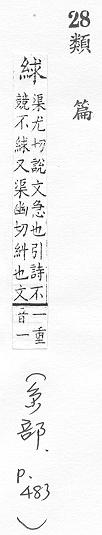 28
類篇
絿
渠尤切說文急也引詩不
競不絿又渠幽切糾也文
一重
音一
(糸部.
p.
483
)